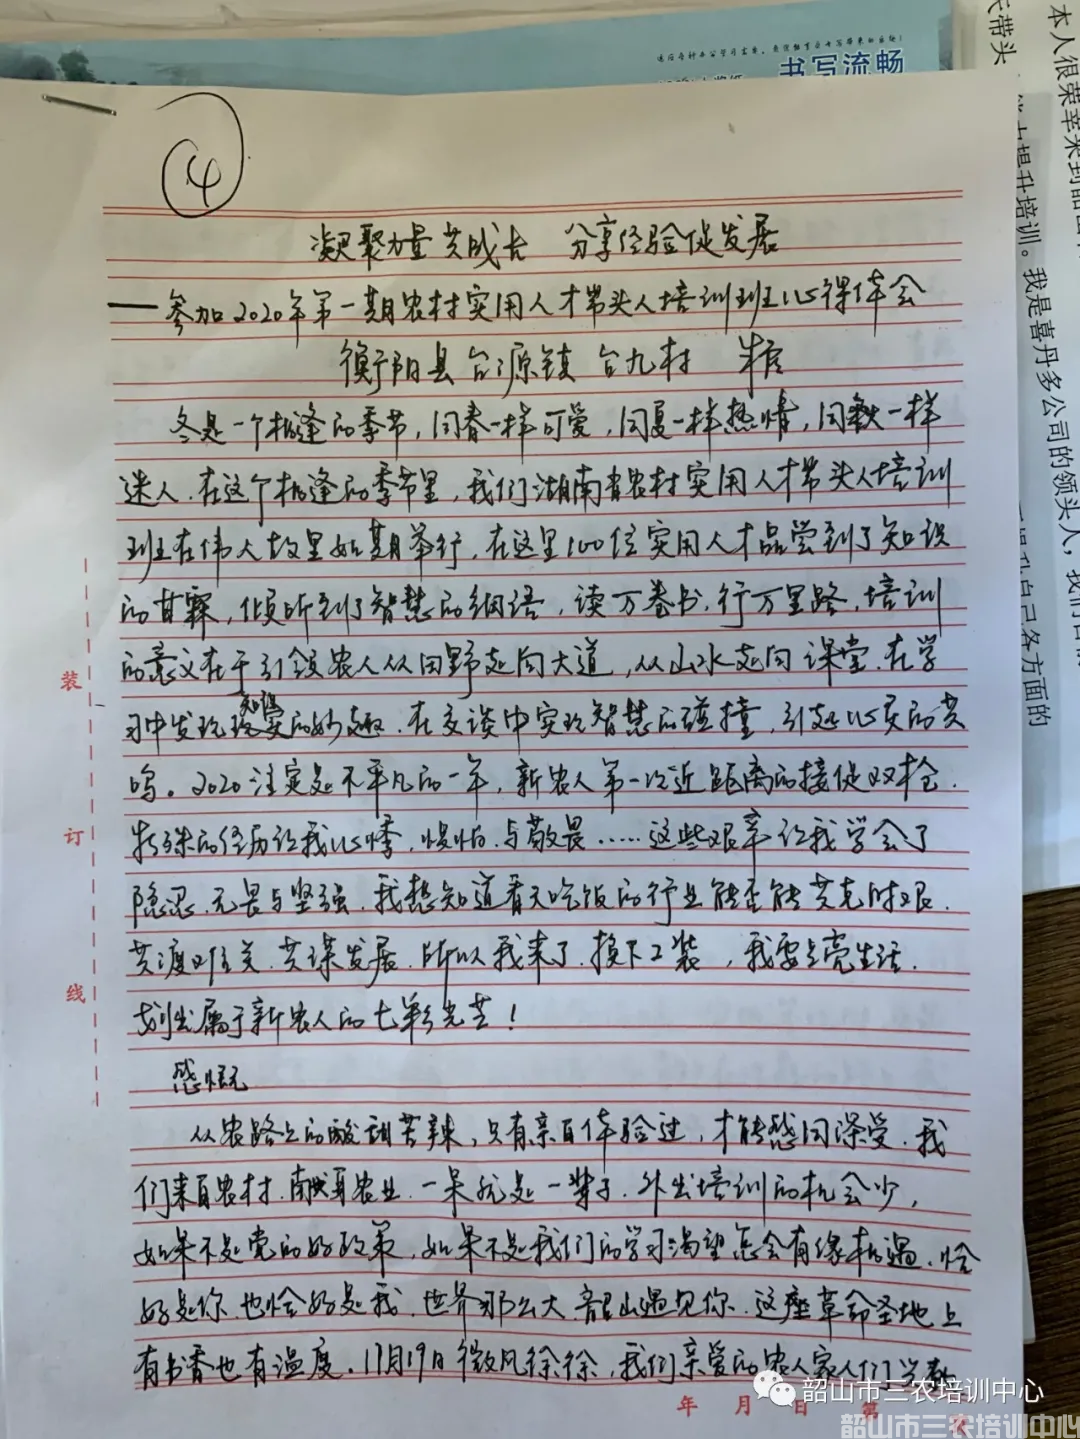 书写流畅
本人很荣幸来到韶山
氏带头
能力提升培训。我是喜丹多公司的领头人,我们合
提升自己各方面的
14
凝聚力量共成长 分享经验促发展
——参加2020年第一期农村实用人才带头人培训班心得体会
衡阳县台源镇台九村
冬是一个相逢的季节,同春一样可爱,同夏一样热情,同秋一样
迷人,在这个相逢的季节里,我们湖南省农村实用人才带头人培训
班在伟人故里如期举行,在这里100位实用人才品尝到了知识
的甘霖,倾听到了智慧的细语,读万卷书,行万里路,培训
的意义在于引领农人从田野走向大道,从山水走向课堂,在学
习中发现知识的妙趣,在交谈中实现智慧的碰撞,引起心灵的共
鸣。2020注定是不平凡的一年,新农人第一次近距离的接促双抢,
特殊的经历让我心悸,惧怕,与敬畏……这些艰辛让我学会了
隐忍,无畏与坚强,我想知道看天吃饭的行业能否能共克时艰,
共渡难关,共谋发展,所以我来了,换下工装,我要点亮生活,
划出属于新农人的七彩光芒!
感慨
从农路上的酸甜苦辣,只有亲自体验过,才能感同深受,我
们来自农村,献身农业,一呆就是一辈子,外出培训的机会少,
如果不是党的好政策,如果不是我们的学习渴望怎会有缘相遇,恰
好是你,也恰好是我,世界那么大,韶山遇见你,这座革命圣地上
有书香也有温度,11月19日微风徐徐,我们亲爱的农人家人们
装
订
线
年 月 日 第
韶山市三农培训中心
韶山市三农培训中心